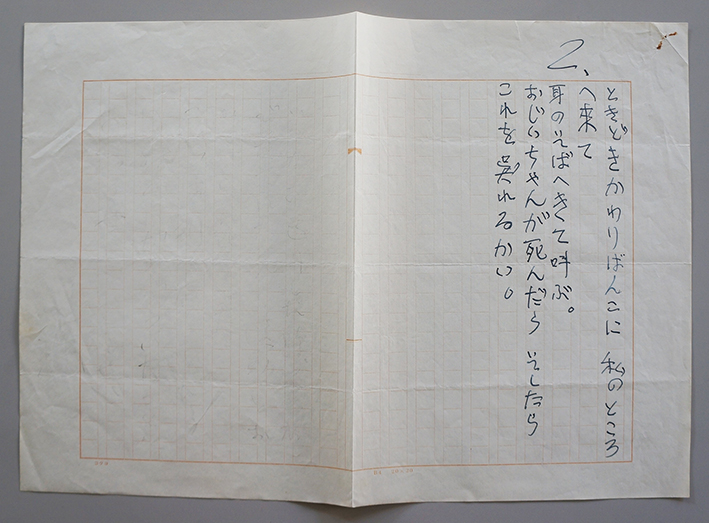 2、
ときどきかわりばんこに 私のところ
へ来て
耳のそばへきて呼ぶ。
おじいちゃんが死んだら そしたら
これを呉れるかい。